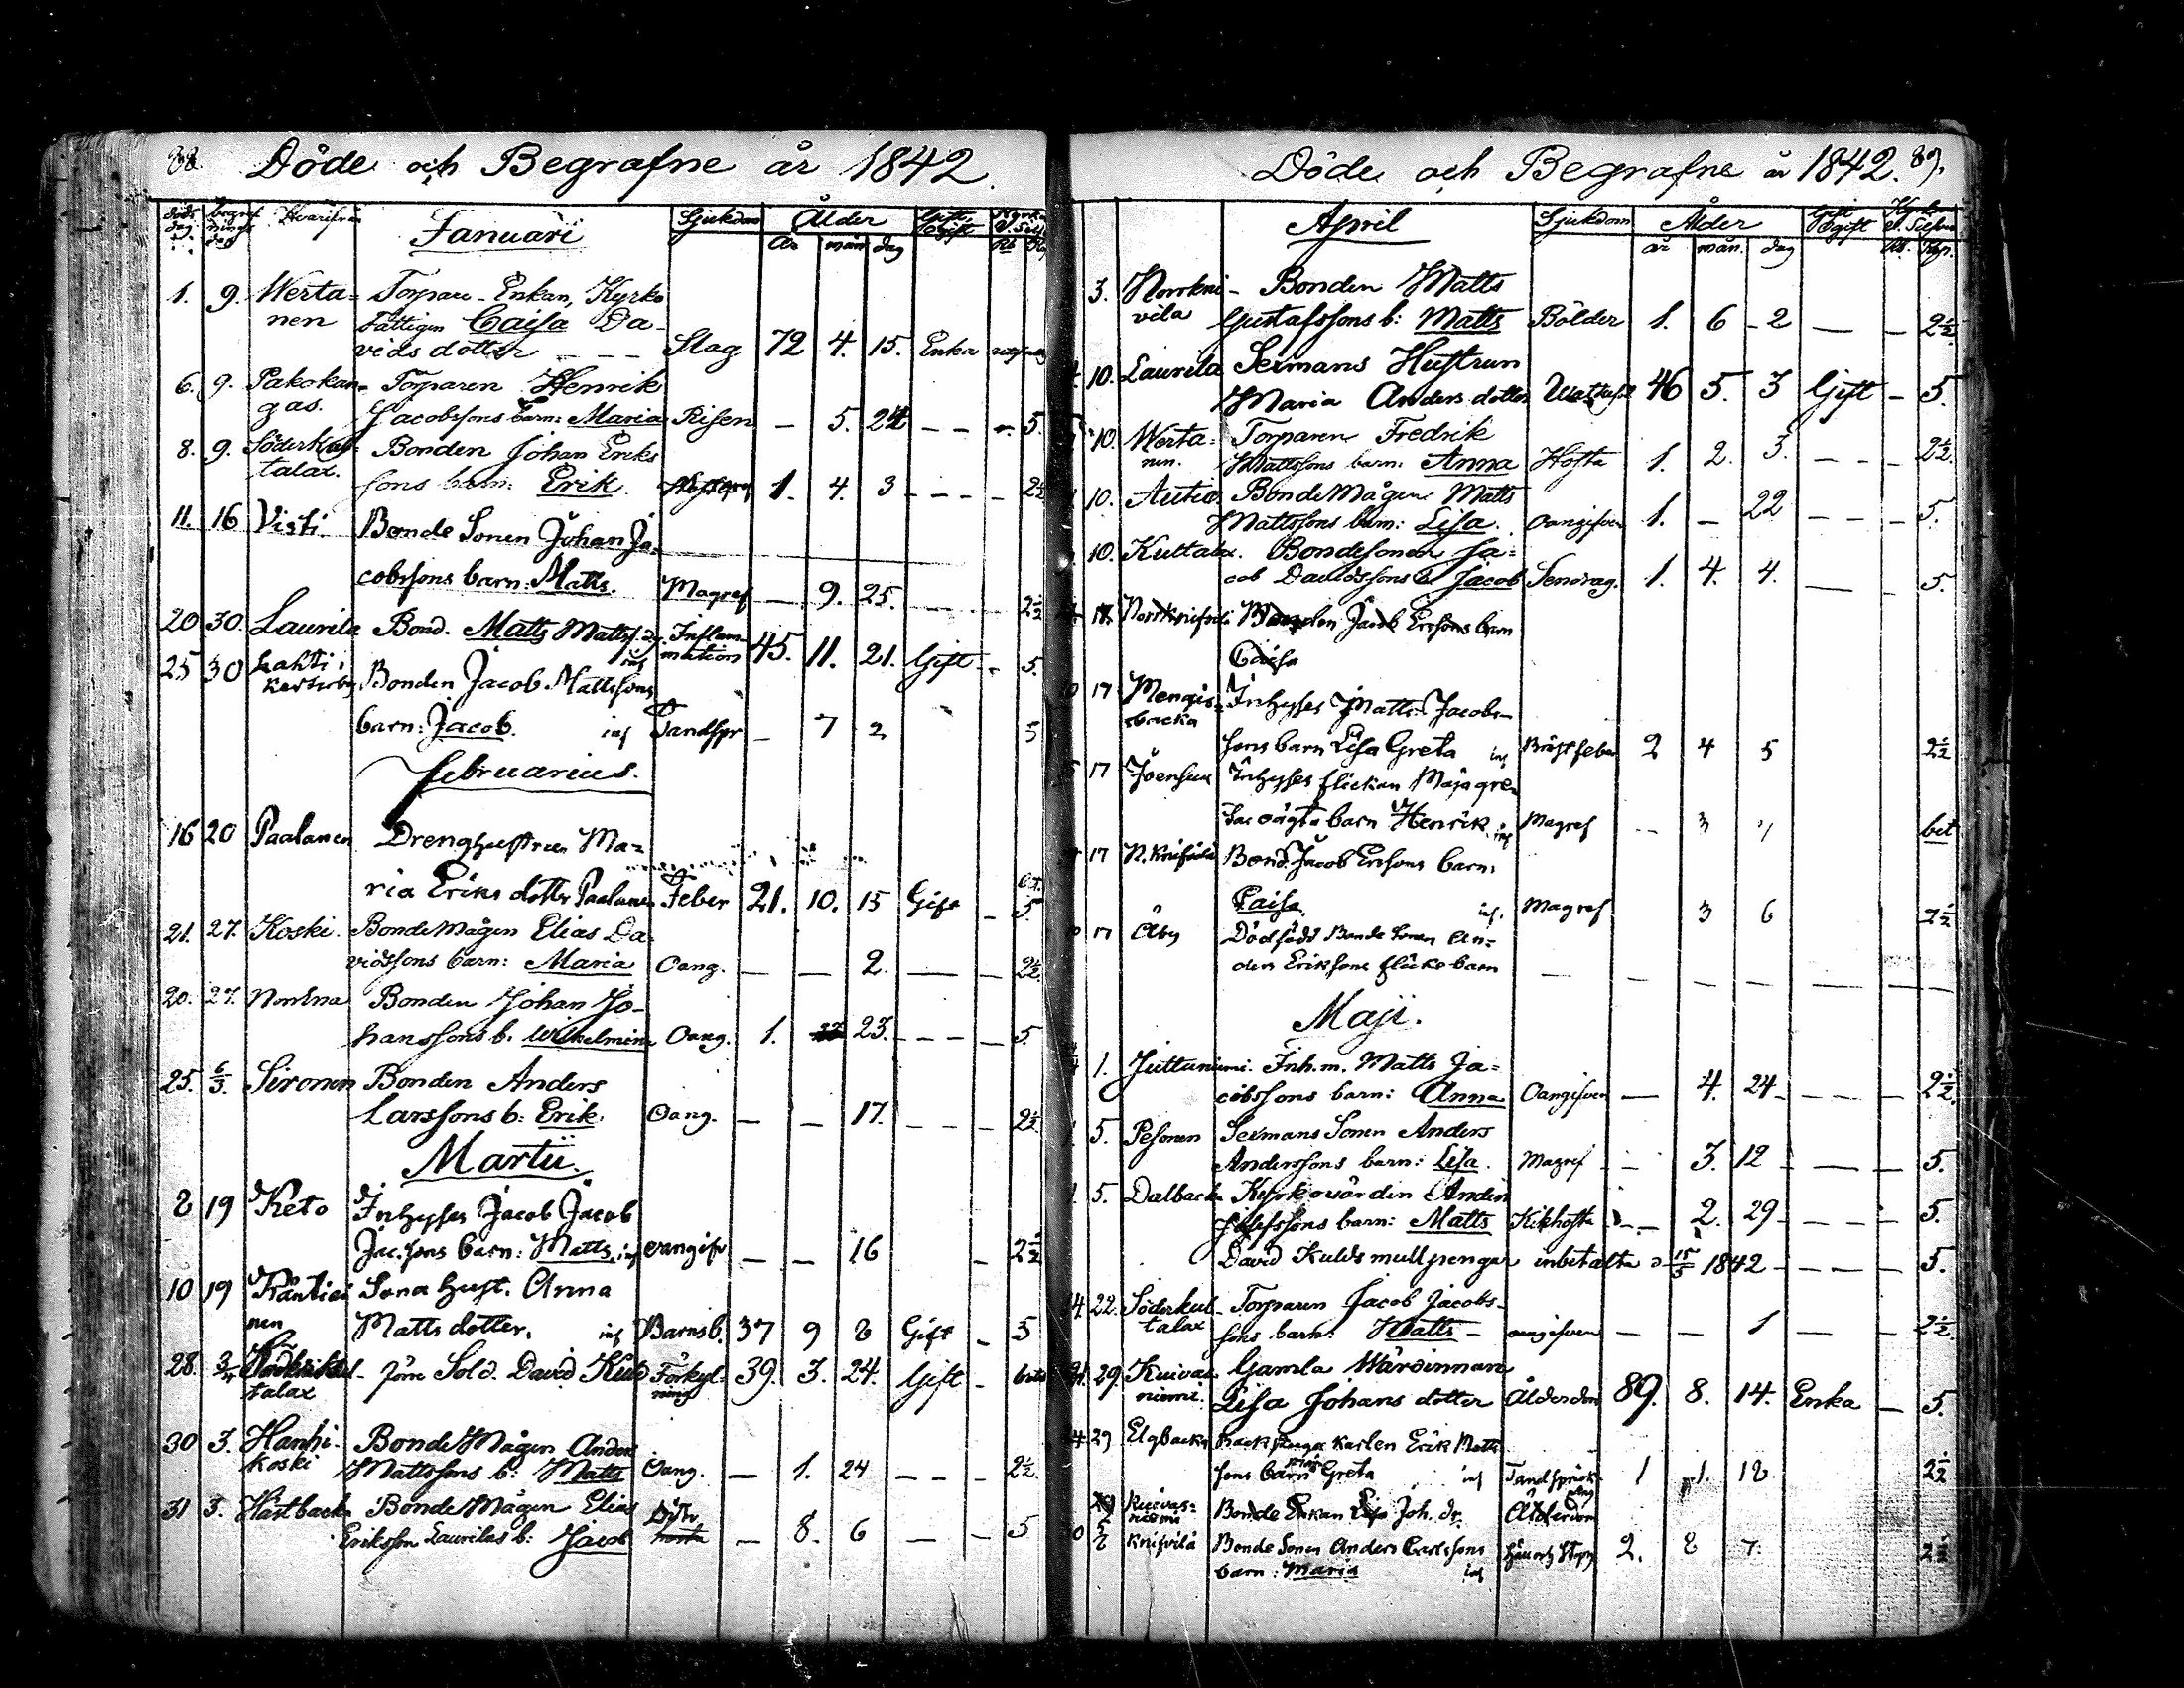 88. Döde och Begrafne år 1842.
Döds dag Begrafnings dag Hvarifrån Januarii Sjukdom Ålder Gift, Ogift
År mån dag
1. 9. Werta-
nen Torpare-Enkan, Kyrko
fattigen Caisa Da-
vids dotter Slag 72 4. 15. Enka
6. 9. Pakokan-
gas. Torparen Henrik
Jacobssons barn: Maria Risen — 5. 24 — — 5.
8. 9. Söderkul-
talax. Bonden Johan Eriks
sons barn: Erik 1. 4. 3 — — — 2½
11. 16 Visti. Bonde Sonen Johan Ja-
cobssons barn: Matts. Magref — 9. 25. 2½
20 30. Laurila Bond. Matts Mattss. Inflam-
mation 45. 11. 21. Gift — 5.
25 30 Lahti i
Bonden Jacob Mattssons
barn: Jacob. inf Tandspr — 7 2 5
Februarius.
16 20 Paalanen Drenghustrun Ma-
ria Eriks dotter Paalanen Feber 21. 10. 15 Gift — 5
21. 27. Koski. BondeMågen Elias Da-
vidssons barn: Maria Oang. — — 2. — — 2½
20. 27. Bonden Johan Jo-
hanssons b. Wilhelmina Oang. 1. 23. — — — 5.
25. 6/3. Sironen Bonden Anders
Larssons b: Erik. Oang. — — 17. — — — 2½
Martii.
8 19 Keto Inhyses Jacob Jacob
Jac.sons barn: Matts. inf oangifv — — 16 — 2½
10 19 Räntiei
nen Sona hust. Anna
Matts dotter. inf Barnsb. 37 9 8 Gift — 5
28. 3/4
talax förre Sold. David Kuld Förkyl-
ning 39. 3. 24. Gift —
30 3. Hanhi-
koski BondeMågen Anders
Mattssons b: Matts Oang. — 1. 24 — — — 2½
31 3. Hästbacka BondeMågen Elias
Eriksson Laurilas b: Jacob — 8. 6 — — 5
Döde och Begrafne år 1842. 89.
April Sjukdom Ålder Gift Ogift
år mån. dag Rb. Kop.
3. Norrkni-
vila Bonden Matts
Gustafssons b: Matts Bölder 1. 6 2 — — 2½
10. Laurila Sexmans Hustrun
Maria Anders dotter Wattusot 46 5. 3 Gift — 5.
10. Werta-
nen. Torparen Fredrik
Mattssons barn: Anna Hosta 1. 2. 3. — — — 2½
10. Autio BondeMågen Matts
Mattssons barn: Lisa. Oangifven 1. — 22 — — — 5.
10. Kuttalax. Bondesonen Ja-
cob Davidssons b Jacob Sendrag. 1. 4. 4. — 5.
Jacob Erssons barn
Caisa
17 Mengis-
backa Inhyses Matts Jacobs-
sons barn Lisa Greta inf Bröstfeber 2 4 5 2½
17 Joensuu Inhyses flickan Maja gre-
tas oägta barn Henrik. inf Magref — 3 bet
17 N. Knifvila Bond. Jacob Erssons barn:
Caisa. inf. Magref 3 6 2½
17 Åby Dödfödt Bonde Sonen An-
ders Erikssons flicke barn — — — — — —
Maji.
1. Juttuniemi. Inh. m. Matts Ja-
cobssons barn: Anna Oangifven — 4. 24 — — — 2½
5. Pesonen Sexmans Sonen Anders
Anderssons barn: Lisa. Magref — 3. 12 — — — 5.
5. Dalbacka Kyrkovärden Anders
Josefssons barn: Matts Kikhosta — 2. 29 — — — 5.
David Kulds mullpengar inbetalta d 15/5 1842 — — — — 5.
22. Söderkul-
talax Torparen Jacob Jacobs-
sons barn: Matts — oangifven — — 1 — — 2½
29. Kuivas
niemi. Gamla Wärdinnan
Lisa Johans dotter Ålderdom 89. 8. 14. Enka — 5.
29 Elgbacka Backstuga karlen Erik Matts
sons barn Greta inf Tandsprickn 1 1. 18. 2½
Kuivas-
niemi Bonde Enkan Lisa Joh. dr. Ålderdom
Knifvila Bonde Sonen Anders Carlssons 2. 8 7. 2½
barn: Maria inf